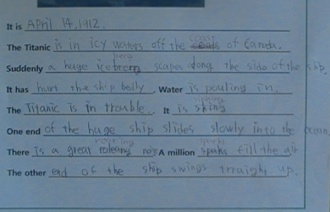 It is April 14, 1912.
The Titanic is in icy waters off the coast of Canada.
Suddenly a huge iceberg scrapes along the side of the ship.
It has hurt the ship belly. Water is pouling in.
The Titanic is in trouble. It is
One end of the huge ship slides slowly into the ocean.
There Is a great noise A million sparks fill the air
The other end of the ship swings straight up.